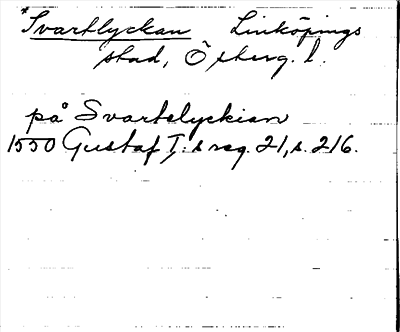 *Svartlyckan Linköpings
stad, Östberg. l.
på Svartelyckian
1550 Gustaf I:s reg. 21, s. 216.